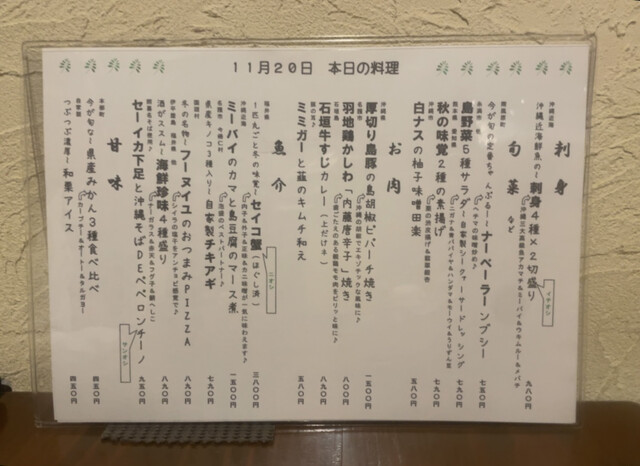 11月20日 本日の料理
刺身
沖縄近海
沖縄近海鮮魚の～刺身4種×2切盛り
九八〇円
イチオシ
旬菜 など
今が旬の定番ちゃんぷるー～ナーベーラーンブシー
七五〇円
島野菜5種サラダ～自家製シークヮーサードレッシング
七九〇円
秋の味覚2種の素揚げ
七九〇円
沖縄市
白ナスの柚子味噌田楽
五八〇円
お肉
沖縄県
厚切り島豚の島胡椒ピパーチ焼き
一五〇〇円
名護市
羽地鶏かしわ「内藤唐辛子」焼き
八〇〇円
石垣島
石垣牛すじカレー(上だけ♪)
八七〇円
ミミガーと韮のキムチ和え
五五〇円
魚介
福井県
～一匹丸ごと冬の味覚～セイコ蟹(ほぐし済)
三八〇〇円
ニオシ
ミーバイのカマと島豆腐のマース煮
一五〇〇円
県産キノコ3種入り～自家製チキアギ
七九〇円
冬の名物～フーヌイユのおつまみPIZZA
八九〇円
酒がススム～海鮮珍味4種盛り
八九〇円
セーイカ下足と沖縄そばDEペペロンチーノ
九五〇円
サンオシ
甘味
本部町
今が旬な～県産みかん3種食べ比べ
四五〇円
自家製
つぶつぶ濃厚～和栗アイス
四五〇円